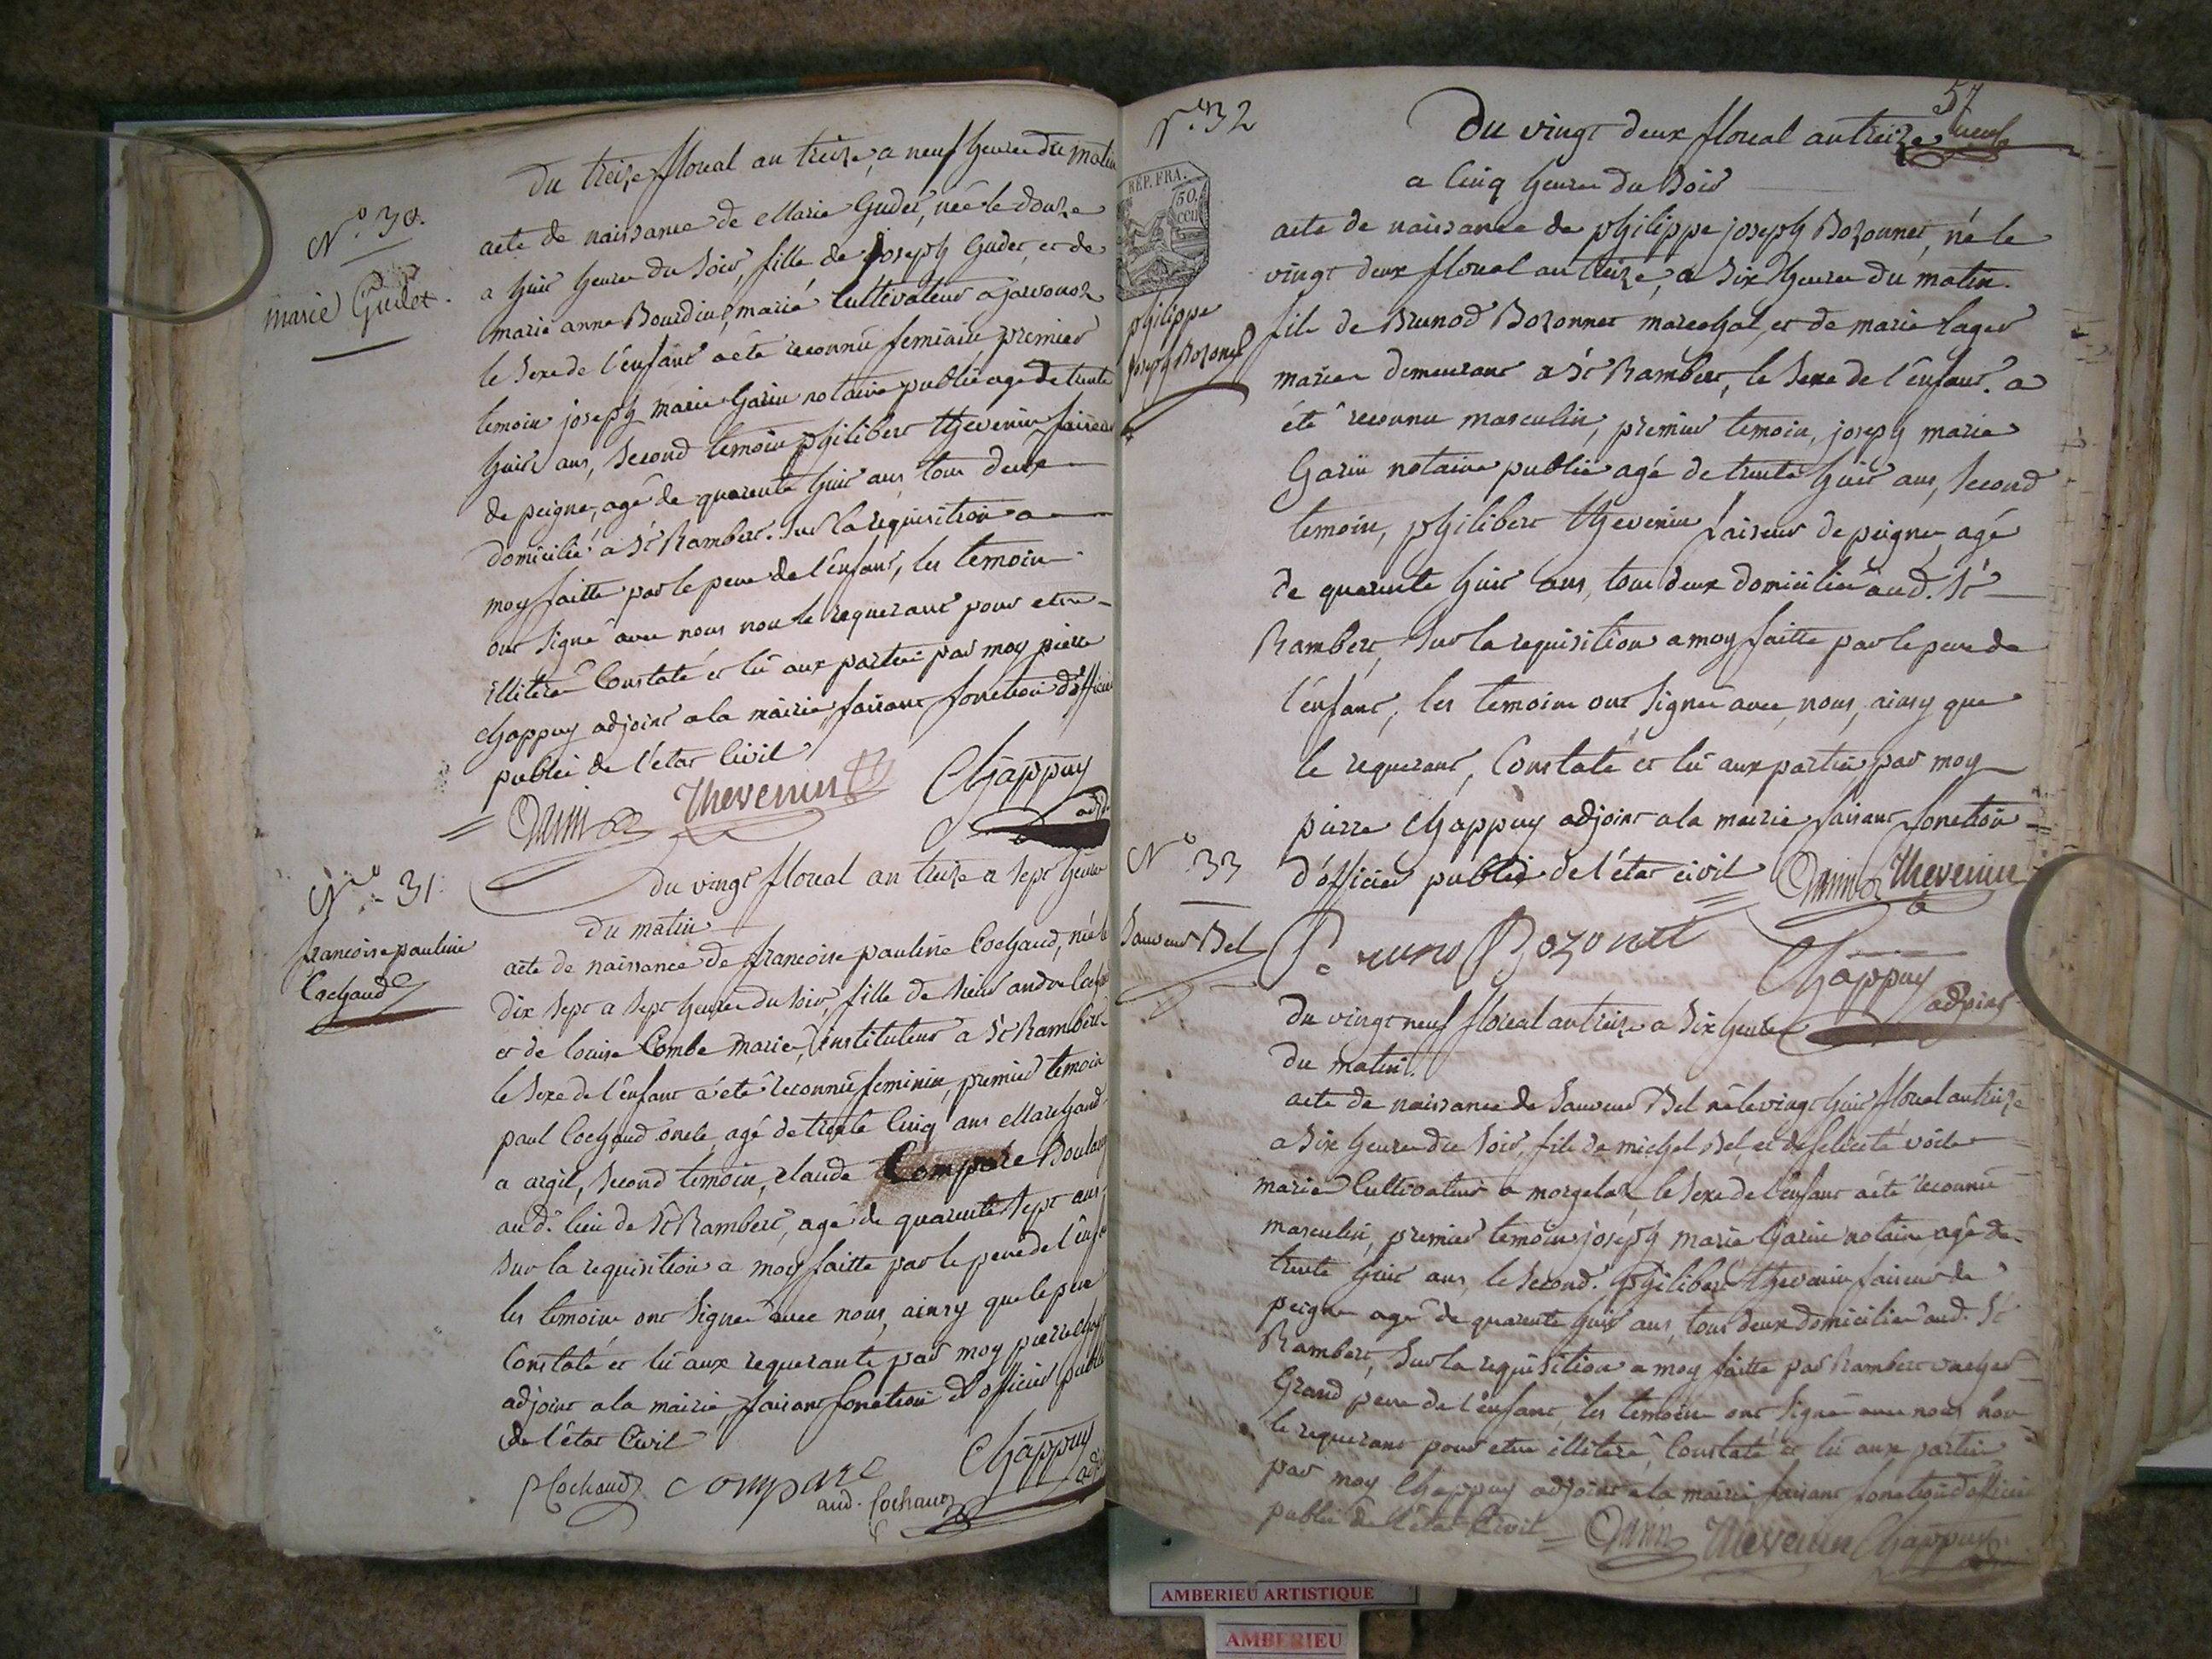 N.o 30.
marie Gudet.
Du treize floreal an treize, a neuf heures du matin
acte de naissance de Marie Gudet, née le douze
a huit heures du soir, fille de joseph Gudet, et de
marie anne Bourdin, mariés Cultivateurs a
le sexe de l'enfant a été reconnu feminin premier
temoin joseph marie Garin notaire public agé de trente
huit ans, second temoin philibert thevenin faiseur
de peignes, agé de quarente huit ans tous deux
domiciliés a St Rambert. Sur la requisition a
moy faitte par le pere de l'enfant, les temoins
ont signé avec nous non le requerant pour etre
illiteré Constaté et lû aux parties par moy pierre
chappuy adjoint a la mairie faisant fonction d'officier
public de l'état Civil
Garin Thevenin Chappuy
adj.
N.o 31.
francoise pauline
Cochaud
Du vingt floreal an treize a sept heures
du matin
acte de naissance de francoise pauline Cochaud, née le
dix sept a sept heures du soir, fille de sieur andré Cochaud
et de louise Combe mariés, instituteur a St Rambert
le sexe de l'enfant a été reconnu feminin, premier temoin
paul Cochaud oncle agé de trente Cinq ans Marchand
a argis, second temoin, claude Compare
aud. lieu de St Rambert, agé de quarente sept ans
sur la requisition a moy faitte par le pere de l'enfant
les temoins ont signé avec nous, ainsy que le pere
Constaté et lû aux requerants par moy pierre chappuy
adjoint a la mairie, faisant fonction d'officier public
de l'état Civil
P Cochaud compare Chappuy
and. Cochaud adj.
57
N.o 32
REP. FRA.
50.
cen
philippe
joseph Bozonet
Du vingt deux floreal an treize
a Cinq heures du soir
acte de naissance de philippe joseph Bozonnet, né le
vingt deux floreal an treize, a six heures du matin.
fils de Brunod Bozonnet marechal, et de marie lager
mariés demeurant a St Rambert, le sexe de l'enfant a
été reconnu masculin, premier temoin, joseph marie
Garin notaire public agé de trente huit ans, second
temoin, philibert thevenin faiseur de peignes, agé
de quarente huit ans, tous deux domiciliés aud. St
Rambert, sur la requisition a moy faitte par le pere de
l'enfant, les temoins ont signés avec nous, ainsy que
le requerant, Constaté et lû aux parties par moy
pierre Chappuy adjoint a la mairie faisant fonction
d'officier public de l'état civil Garin Thevenin
Bruno Bozonet
Chappuy
adjoint
N.o 33
Sauveur Bel
du vingt neuf floreal an treize a six heures
du matin.
acte de naissance de Sauveur Bel né le vingt huit floreal an treize
a six heures du soir, fils de michel Bel, et de felicité
mariés Cultivateurs a morgelas, le sexe de l'enfant a été reconnu
masculin, premier temoin joseph marie Garin notaire agé de
trente huit ans, le second. philibert thevenin faiseur de
peignes agé de quarente huit ans, tous deux domiciliés aud. St
Rambert, sur la requisition a moy faitte par Rambert
Grand pere de l'enfant, les temoins ont signé avec nous non
le requerant pour etre illiteré, Constaté et lû aux parties
par moy Chappuy adjoint a la mairie faisant fonction d'officier
public de l'état Civil Garin Thevenin Chappuy
AMBERIEU ARTISTIQUE
AMBERIEU